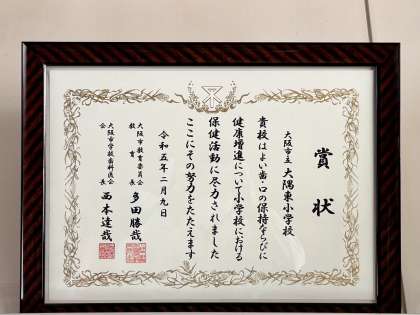 賞状
大阪市立 大隅東小学校
貴校はよい歯・口の保持ならびに
健康増進について小学校における
保健活動に尽力されました
ここにその努力をたたえます
令和五年二月九日
大阪市教育委員会
教育長 多田勝哉
大阪市学校歯科医会
会長 西本達哉